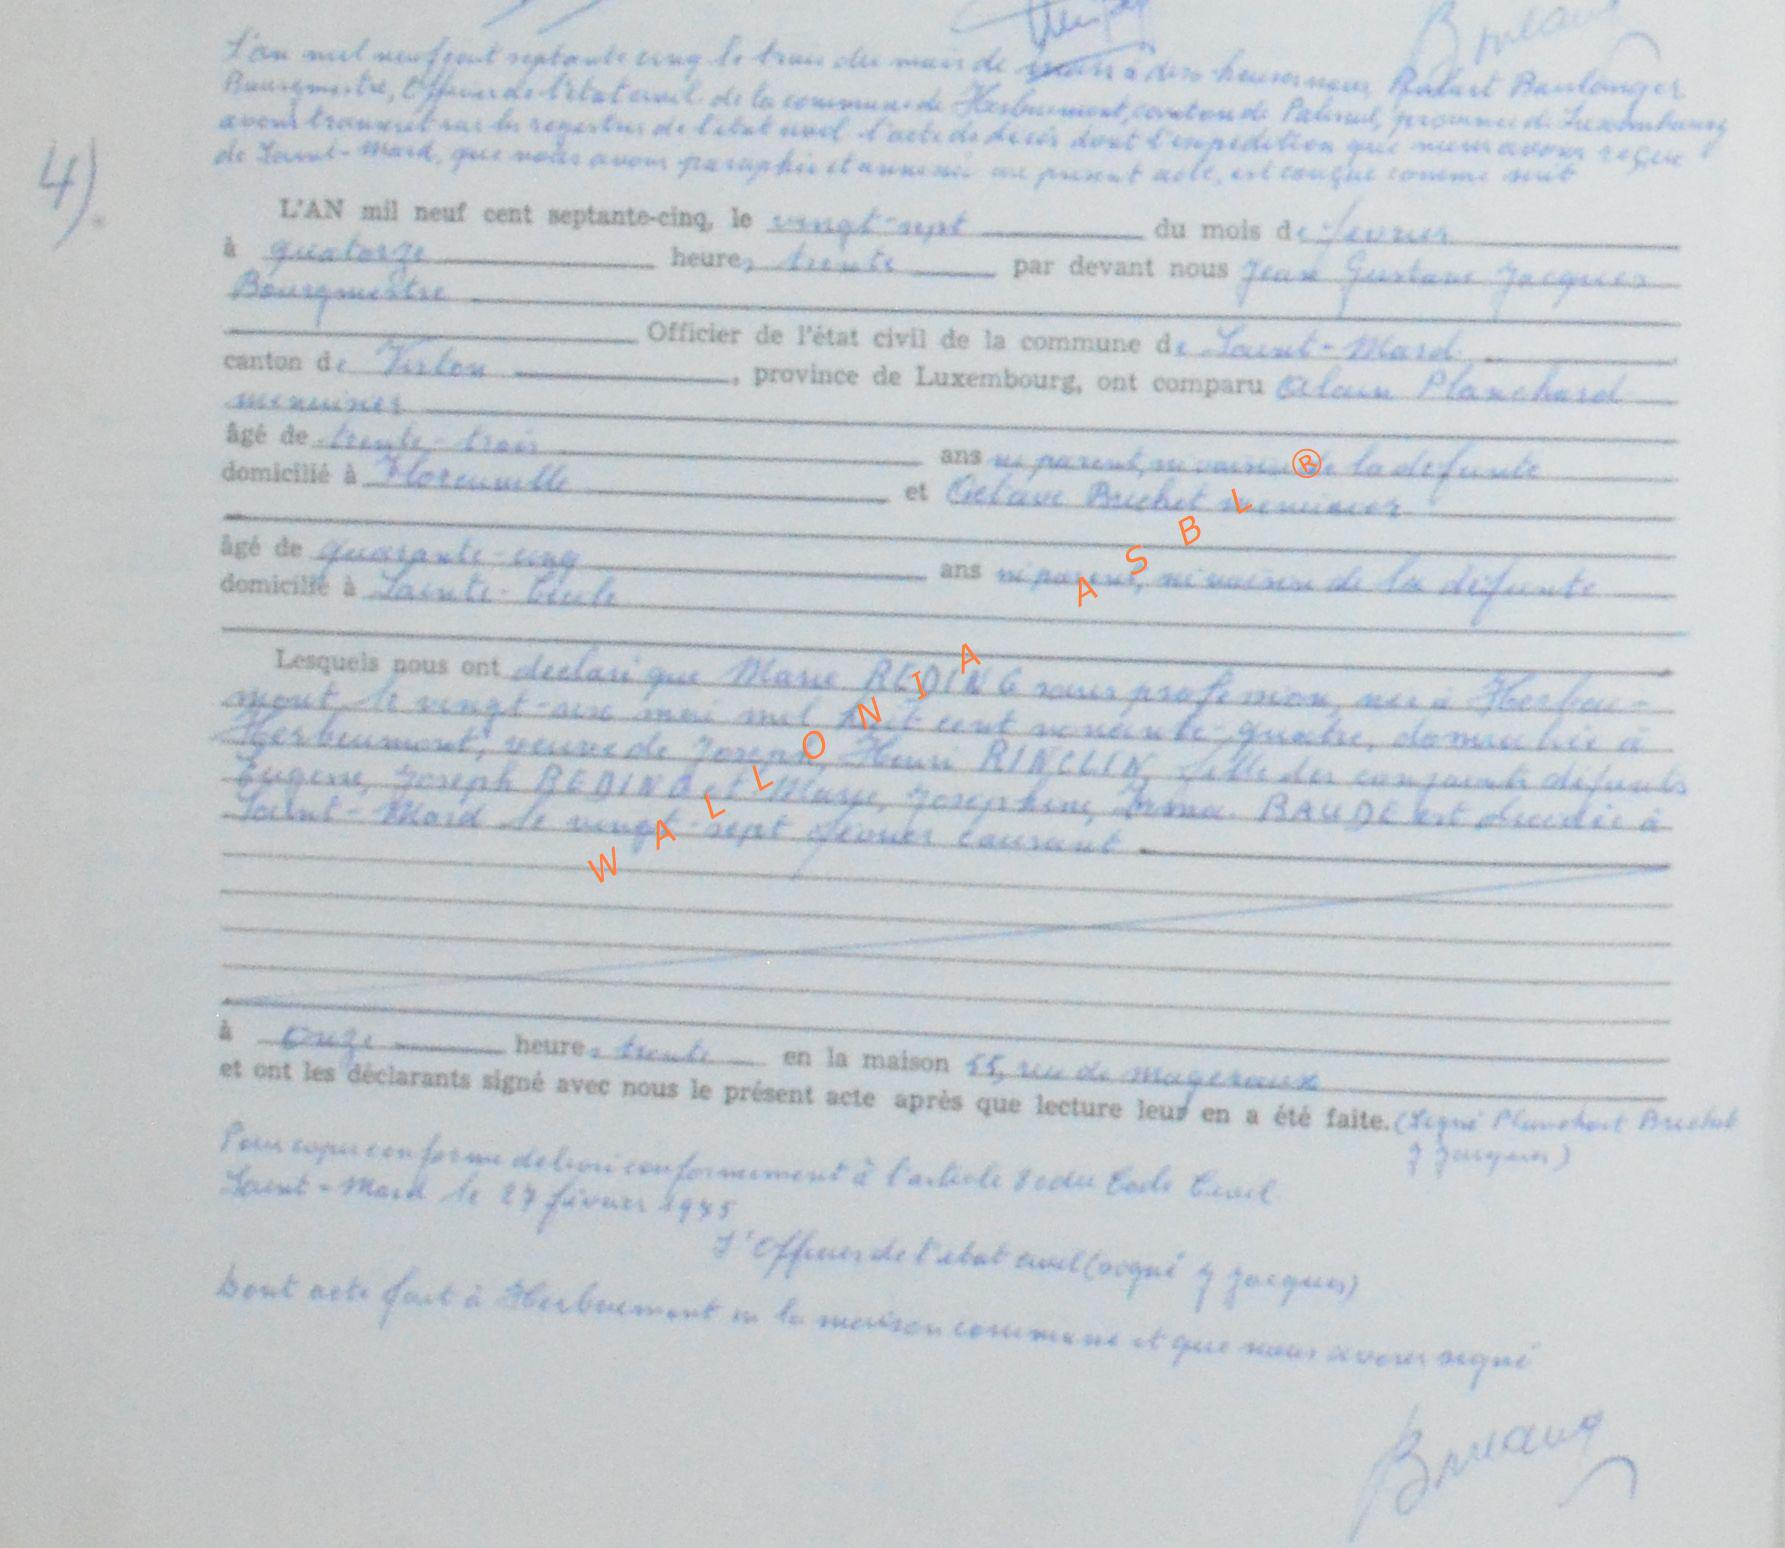 L'an mil neuf cent septante cinq le trois du mois de mars à dix heures nous Robert Boulanger
Bourgmestre, Officier de l'état civil de la commune de Herbeumont, canton de Paliseul, province de Luxembourg
avons transcrit sur les registres de l'état civil l'acte de décès dont l'expédition que nous avons reçue
de Saint-Mard, que nous avons paraphée et annexée au présent acte, est conçue comme suit
4).
L'AN mil neuf cent septante-cinq, le vingt-sept du mois de février
à quatorze heures trente par devant nous Jean Gustave Jacques
Bourgmestre
Officier de l'état civil de la commune de Saint-Mard
canton de Virton, province de Luxembourg, ont comparu Alain Planchard
menuisier
âgé de trente-trois ans ni parent, ni voisin de la défunte
domicilié à Florenville et Octave Brichet menuisier
âgé de quarante-cinq ans ni parent, ni voisin de la défunte
domicilié à Sainte-Cécile
Lesquels nous ont déclaré que Marie REDING sans profession, née à Herbeu-
mont le vingt-six mai mil huit cent nonante-quatre, domiciliée à
Herbeumont, veuve de Joseph, Henri RINCLIN, fille des conjoints défunts
Eugène, Joseph REDING et Marie, Joséphine, Irma BAUDE est décédée à
Saint-Mard le vingt-sept février courant
à onze heures trente en la maison 55, rue de Mageroux
et ont les déclarants signé avec nous le présent acte après que lecture leur en a été faite. (Signé Planchart Brichet
J Jacques)
Pour copie conforme délivrée conformément à l'article 80 du Code Civil
Saint-Mard le 27 février 1975
L'Officier de l'état civil (signé J Jacques)
Dont acte fait à Herbeumont en la maison communale et que nous avons signé
WALLONIA ASBL ®